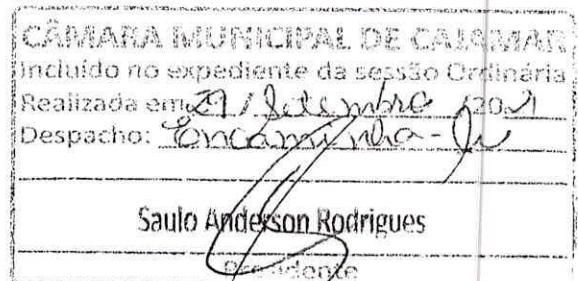 CÂMARA MUNICIPAL DE CAJAMAR
Incluído no expediente da sessão Ordinária
Realizada em / Setembro /20
Despacho: Encaminha-se
Saulo Anderson Rodrigues
Presidente